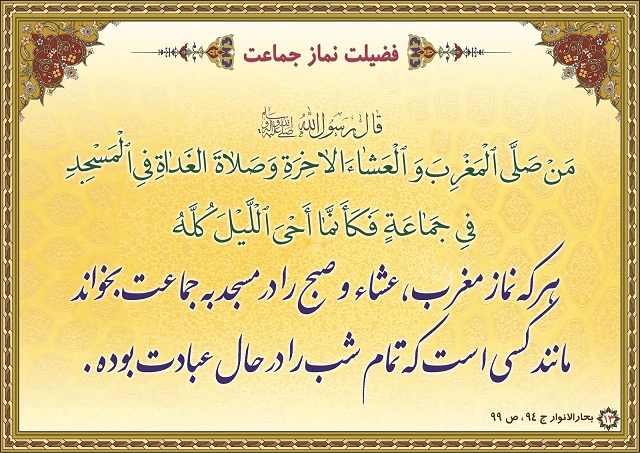 فضیلت نماز جماعت
قَالَ رَسُولُ اللهِ صلی الله علیه وآله
مَنْ صَلَّی الْمَغْرِبَ وَ الْعَشاءَ الآخِرَةِ وَ صَلاةَ الغَداةِ فِی الْمَسْجِدِ
فِی جَمَاعَةٍ فَکَأَنَّمَا أَحْیَ اللَّیْلَ کُلَّهُ
هر که نماز مغرب، عشاء و صبح را در مسجد به جماعت بخواند
مانند کسی است که تمام شب را در حال عبادت بوده.
۱۳ بحارالانوار ج ۹۴، ص ۹۹